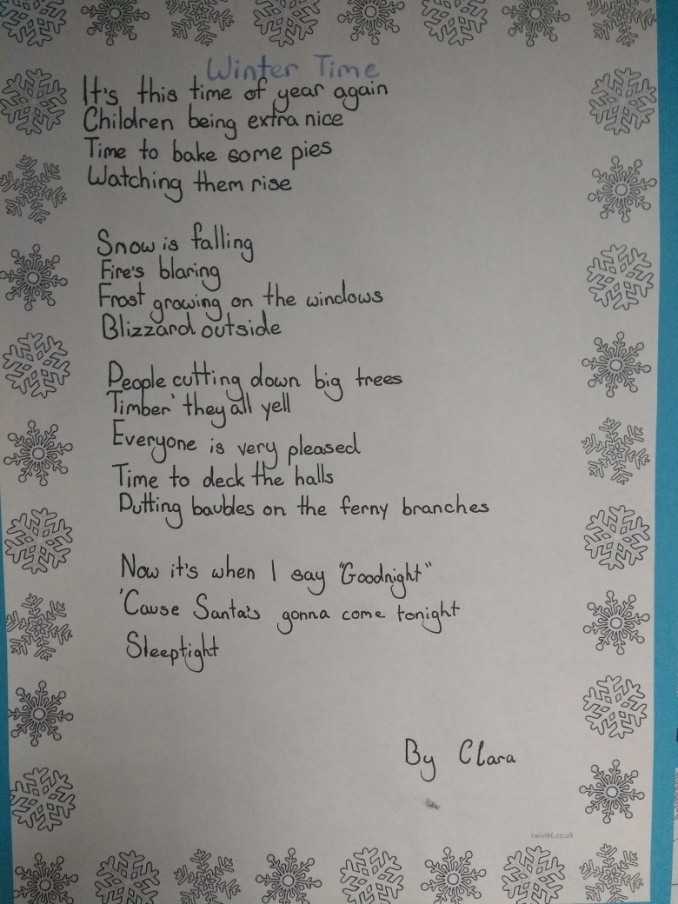 Winter Time
It's this time of year again
Children being extra nice
Time to bake some pies
Watching them rise
Snow is falling
Fire's blaring
Frost growing on the windows
Blizzard outside
People cutting down big trees
Timber' they all yell
Everyone is very pleased
Time to deck the halls
Putting baubles on the ferny branches
Now it's when I say "Goodnight"
'Cause Santa's gonna come tonight
Sleeptight
By Clara
twinkl.co.uk